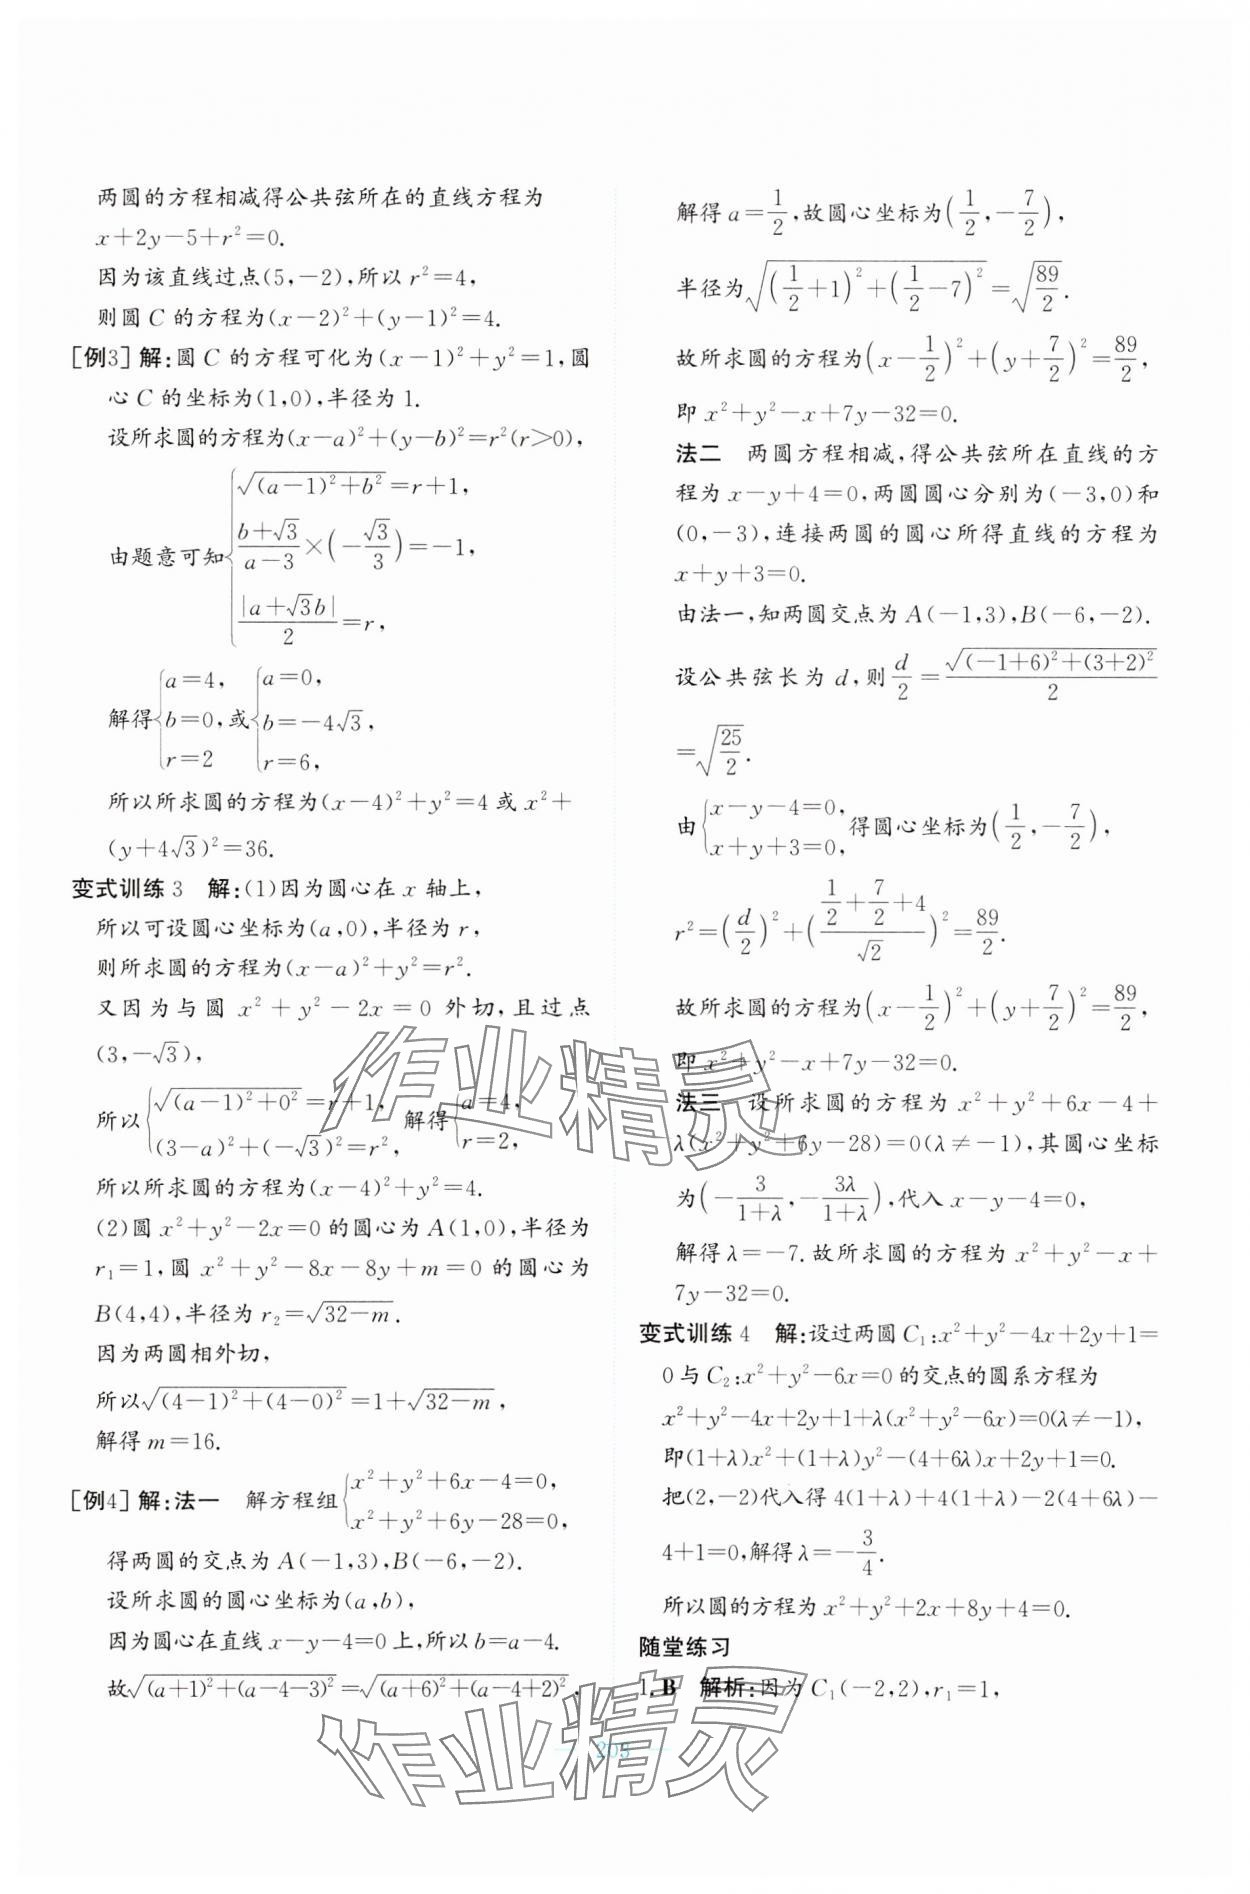 两圆的方程相减得公共弦所在的直线方程为
x+2y-5+r²=0.
因为该直线过点(5,-2),所以 r²=4,
则圆 C 的方程为(x-2)²+(y-1)²=4.
[例3] 解:圆 C 的方程可化为(x-1)²+y²=1,圆
心 C 的坐标为(1,0),半径为 1.
设所求圆的方程为(x-a)²+(y-b)²=r²(r>0),
由题意可知{√((a-1)²+b²)=r+1,
(b+√3)/(a-3)×(-√3/3)=-1,
|a+√3b|/2=r,
解得{a=4, b=0, r=2 或{a=0, b=-4√3, r=6,
所以所求圆的方程为(x-4)²+y²=4 或 x²+
(y+4√3)²=36.
变式训练 3 解:(1)因为圆心在 x 轴上,
所以可设圆心坐标为(a,0),半径为 r,
则所求圆的方程为(x-a)²+y²=r².
又因为与圆 x²+y²-2x=0 外切,且过点
(3,-√3),
所以{√((a-1)²+0²)=r+1, (3-a)²+(-√3)²=r², 解得{a=4, r=2,
所以所求圆的方程为(x-4)²+y²=4.
(2)圆 x²+y²-2x=0 的圆心为 A(1,0),半径为
r₁=1,圆 x²+y²-8x-8y+m=0 的圆心为
B(4,4),半径为 r₂=√(32-m).
因为两圆相外切,
所以√((4-1)²+(4-0)²)=1+√(32-m),
解得 m=16.
[例4] 解:法一 解方程组{x²+y²+6x-4=0, x²+y²+6y-28=0,
得两圆的交点为 A(-1,3),B(-6,-2).
设所求圆的圆心坐标为(a,b),
因为圆心在直线 x-y-4=0 上,所以 b=a-4.
故√((a+1)²+(a-4-3)²)=√((a+6)²+(a-4+2)²),
解得 a=1/2,故圆心坐标为(1/2,-7/2),
半径为√((1/2+1)²+(1/2-7)²)=√(89/2).
故所求圆的方程为(x-1/2)²+(y+7/2)²=89/2,
即 x²+y²-x+7y-32=0.
法二 两圆方程相减,得公共弦所在直线的方
程为 x-y+4=0,两圆圆心分别为(-3,0)和
(0,-3),连接两圆的圆心所得直线的方程为
x+y+3=0.
由法一,知两圆交点为 A(-1,3),B(-6,-2).
设公共弦长为 d,则 d/2=√((-1+6)²+(3+2)²)/2
=√(25/2).
由{x-y-4=0, x+y+3=0, 得圆心坐标为(1/2,-7/2),
r²=(d/2)²+((1/2+7/2+4)/√2)²=89/2.
故所求圆的方程为(x-1/2)²+(y+7/2)²=89/2,
即 x²+y²-x+7y-32=0.
法三 设所求圆的方程为 x²+y²+6x-4+
λ(x²+y²+6y-28)=0(λ≠-1),其圆心坐标
为(-3/(1+λ),-3λ/(1+λ)),代入 x-y-4=0,
解得 λ=-7.故所求圆的方程为 x²+y²-x+
7y-32=0.
变式训练 4 解:设过两圆 C₁:x²+y²-4x+2y+1=
0 与 C₂:x²+y²-6x=0 的交点的圆系方程为
x²+y²-4x+2y+1+λ(x²+y²-6x)=0(λ≠-1),
即(1+λ)x²+(1+λ)y²-(4+6λ)x+2y+1=0.
把(2,-2)代入得 4(1+λ)+4(1+λ)-2(4+6λ)-
4+1=0,解得 λ=-3/4.
所以圆的方程为 x²+y²+2x+8y+4=0.
随堂练习
1. B 解析:因为 C₁(-2,2),r₁=1,
203
作业精灵
作业精灵